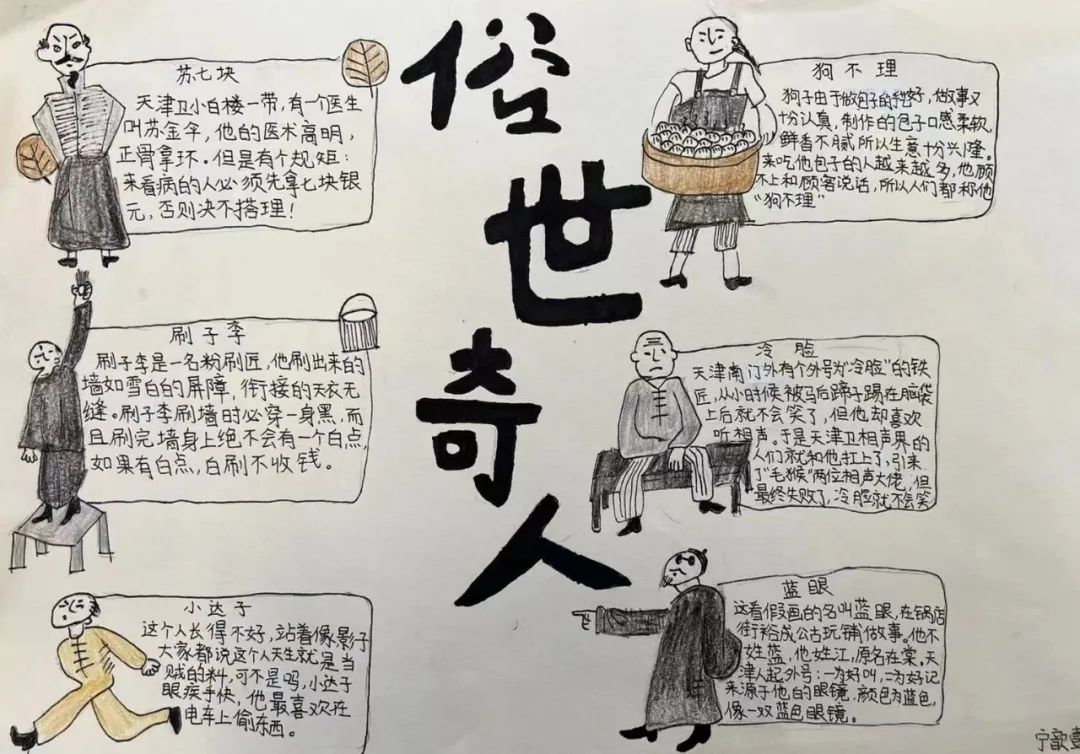 俗世奇人
苏七块
天津卫小白楼一带,有一个医生
叫苏金伞,他的医术高明,
正骨拿环.但是有个规矩:
来看病的人必须先拿七块银
元,否则决不搭理!
刷子李
刷子李是一名粉刷匠,他刷出来的
墙如雪白的屏障,衔接的天衣无
缝。刷子李刷墙时必穿一身黑,而
且刷完墙身上绝不会有一个白点,
如果有白点,白刷不收钱。
小达子
这个人长得不好,站着像影子
大家都说这个人天生就是当
贼的料,可不是吗,小达子
眼疾手快,他最喜欢在
电车上偷东西。
狗不理
狗子由于做包子的好,做事又
十分认真,制作的包子口感柔软,
鲜香不腻所以生意十分兴隆。
来吃他包子的人越来越多,他顾
不上和顾客说话,所以人们都称他
“狗不理”
冷脸
天津南门外有个外号为“冷脸”的铁
匠,从小时候被马后蹄子踢在脑袋
上后就不会笑了,但他却喜欢
听相声。于是天津卫相声界的
人们就和他扛上了,引来
了“毛猴”两位相声大佬,但
最终失败了,冷脸就不会笑
蓝眼
这看假画的名叫蓝眼,在锅店
街裕成公古玩铺做事。他不
姓蓝,他姓江,原名在棠。天
津人起外号:一为好叫,二为好记
来源于他的眼镜,颜色为蓝色,
像一双蓝色眼镜。
宁歆